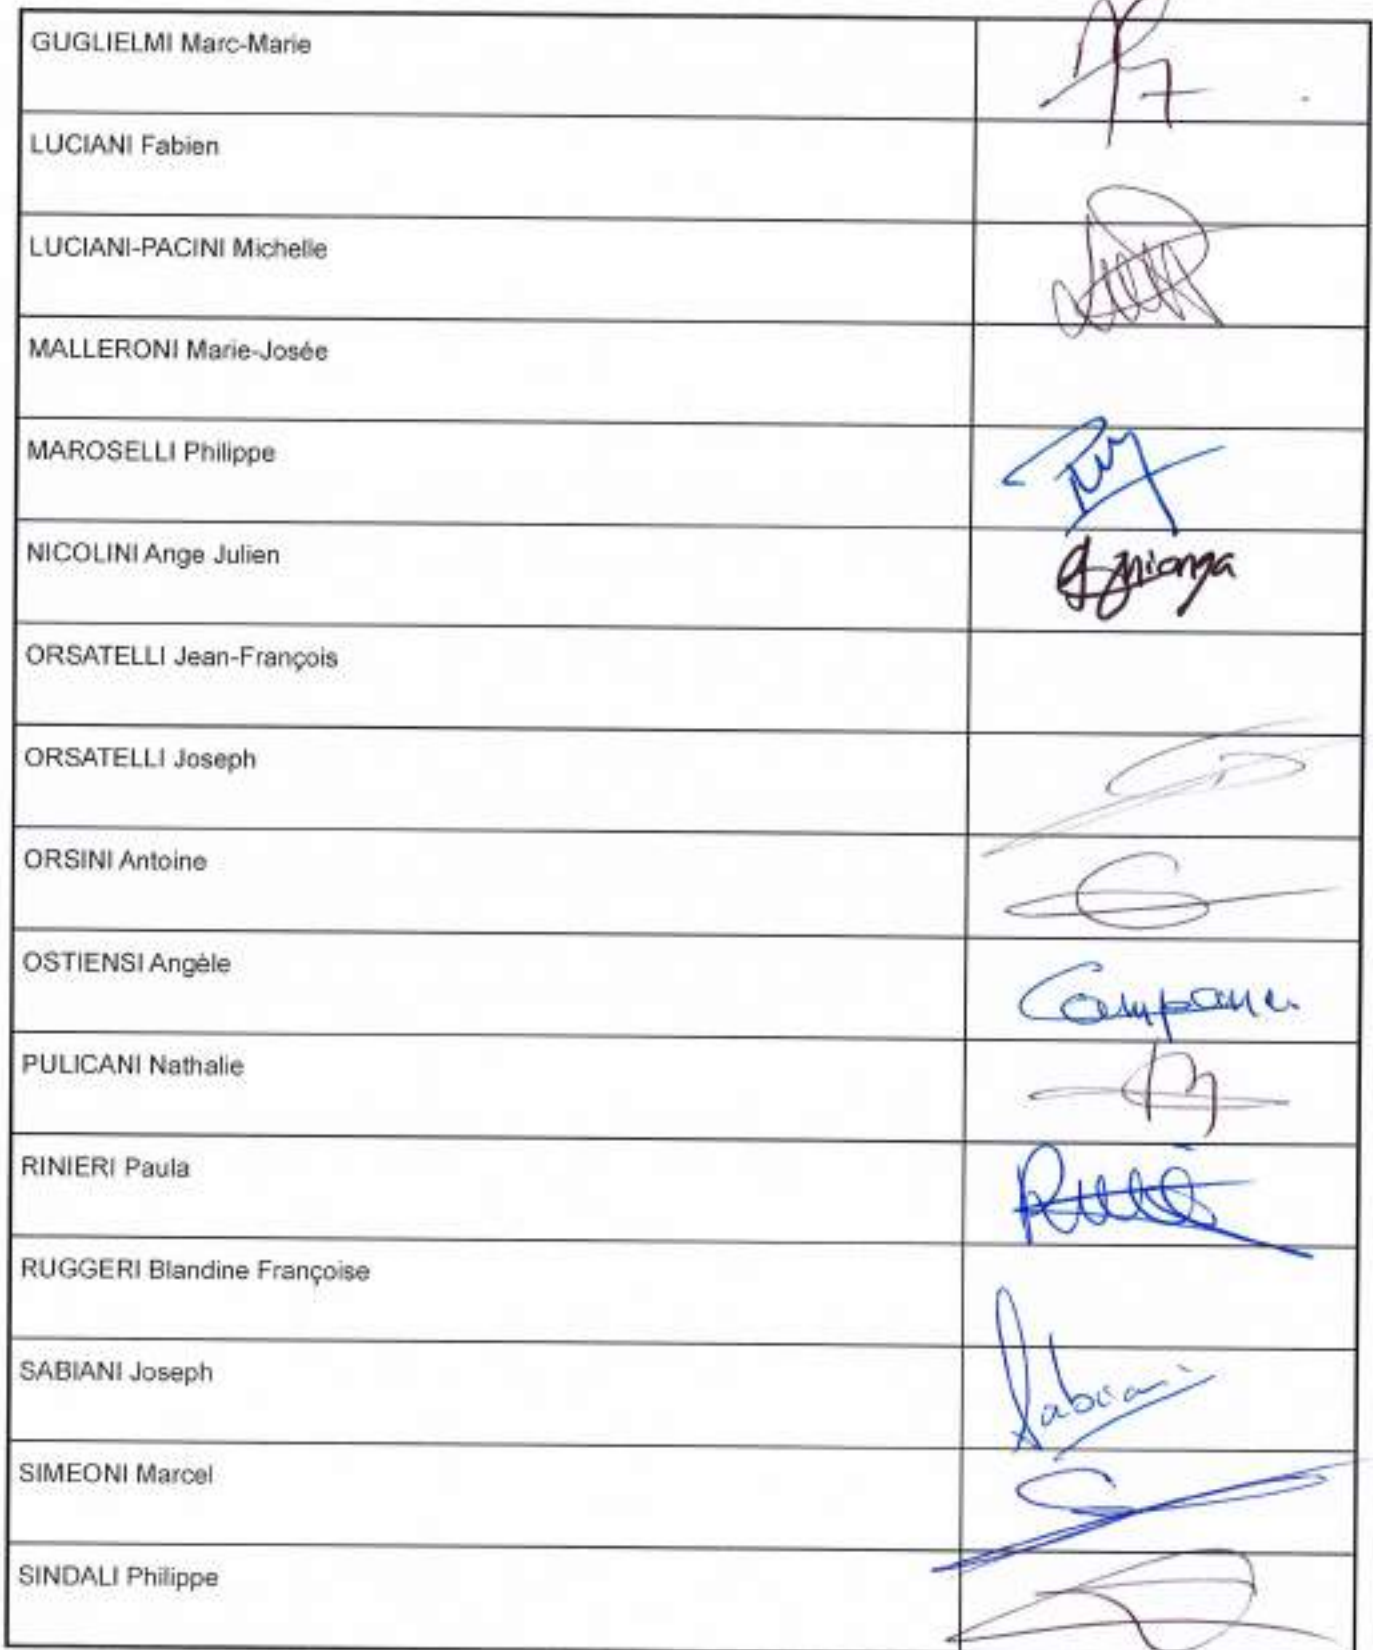 GUGLIELMI Marc-Marie
LUCIANI Fabien
LUCIANI-PACINI Michelle
MALLERONI Marie-Josée
MAROSELLI Philippe
NICOLINI Ange Julien
ORSATELLI Jean-François
ORSATELLI Joseph
ORSINI Antoine
OSTIENSI Angèle
PULICANI Nathalie
RINIERI Paula
RUGGERI Blandine Françoise
SABIANI Joseph
Sabiani
SIMEONI Marcel
SINDALI Philippe